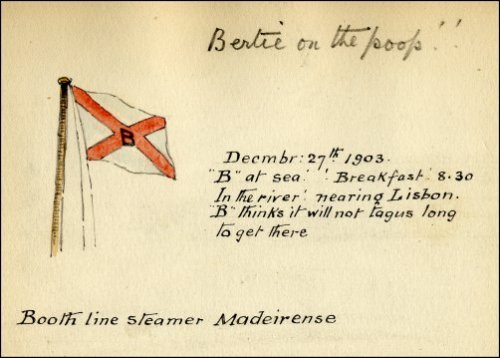 Bertie on the poop!!
B
Decmbr: 27th 1903.
"B" at sea! ! Breakfast. 8.30
In the river! nearing Lisbon.
"B" thinks it will not tagus long
to get there
Booth line steamer Madeirense